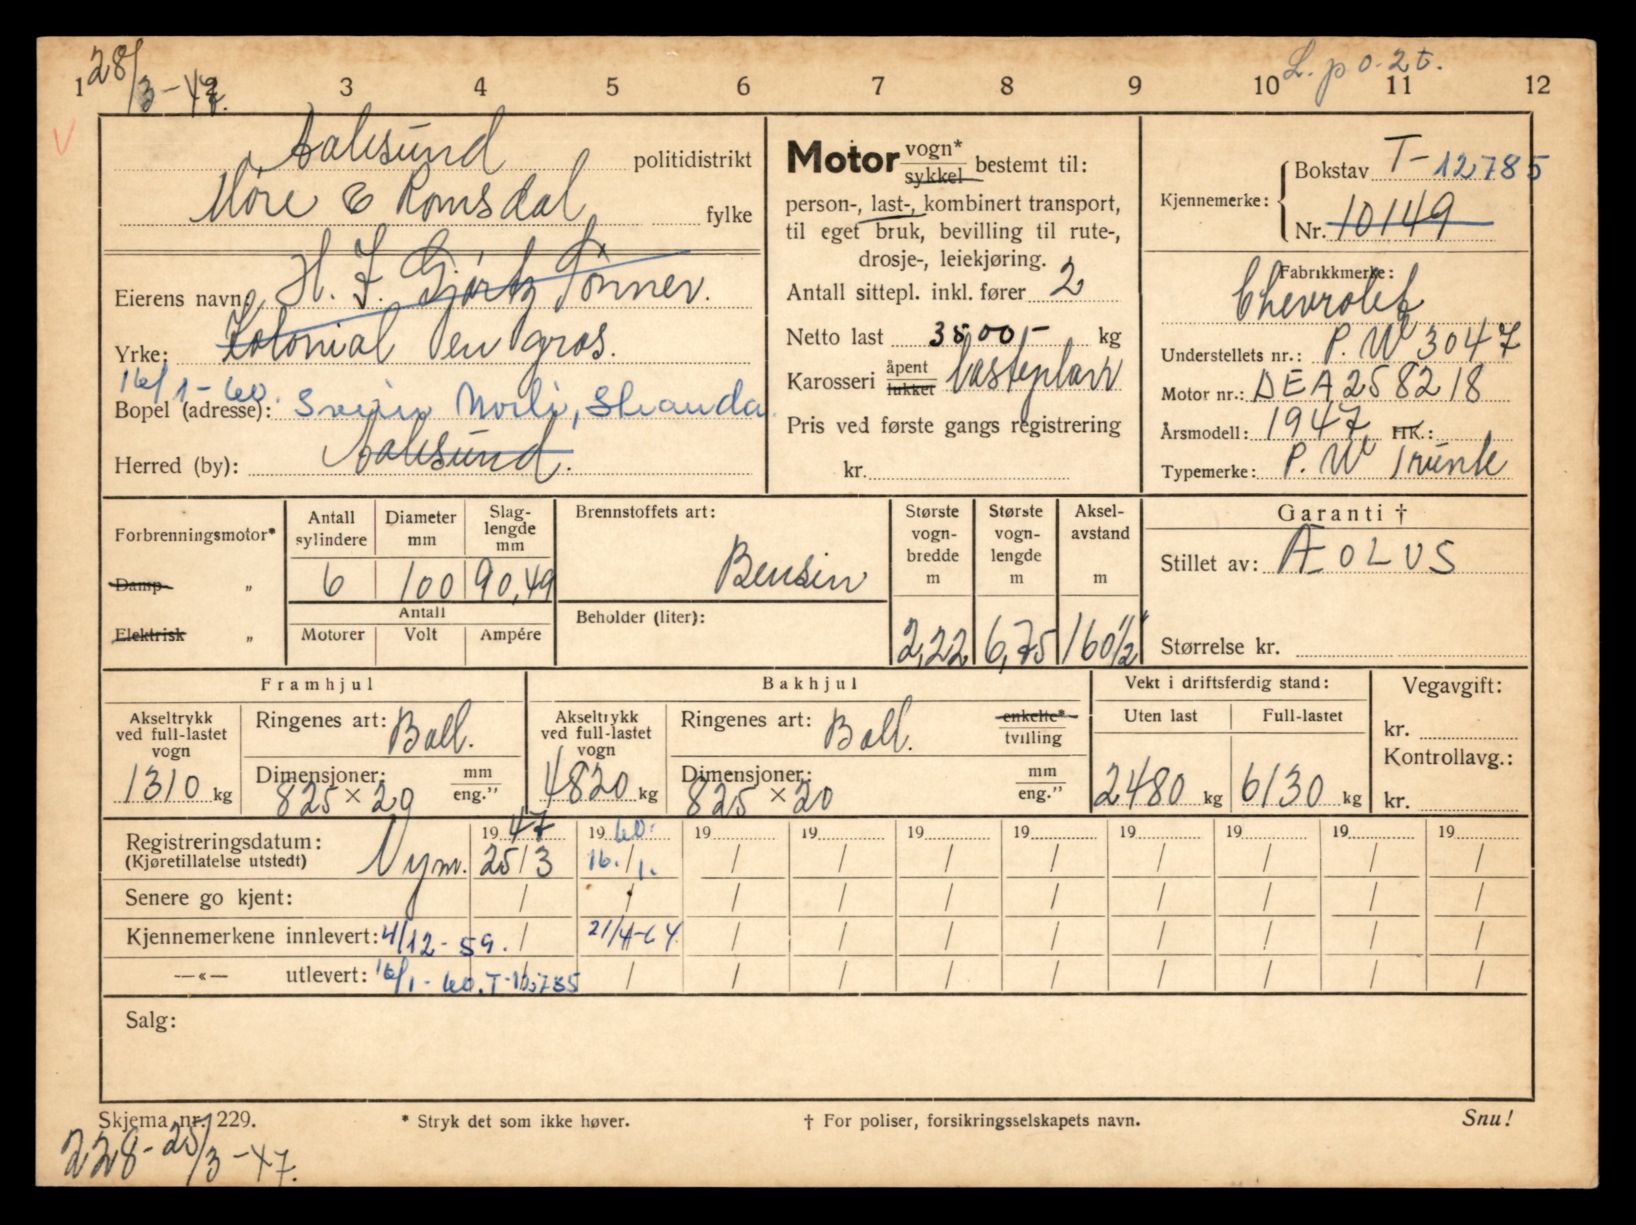 28/3-47.
L. p o. 2 t.
1 3 4 5 6 7 8 9 10 11 12
Aalesund politidistrikt
Møre & Romsdal fylke
Eierens navn: H. J. Gjørtz Sønner.
Yrke: Kolonial en gros.
16/1-60.
Bopel (adresse): Svein Norli, Stranda.
Herred (by): Aalesund.
Motor vogn*
sykkel bestemt til:
person-, last-, kombinert transport,
til eget bruk, bevilling til rute-,
drosje-, leiekjøring.
Antall sittepl. inkl. fører 2
Netto last 3500,- kg
Karosseri åpent
lukket lasteplan
Pris ved første gangs registrering
kr.
Kjennemerke: Bokstav T- 12785
Nr. 10149
Fabrikkmerke:
Chevrolet
Understellets nr.: P. W 3047
Motor nr.: DEA 258218
Årsmodell: 1947 HK.:
Typemerke: P. W Trunk
Forbrenningsmotor*
Damp- „
Elektrisk „
Antall sylindere
6
Diameter mm
100
Slag-lengde mm
90,49
Antall
Motorer Volt Ampére
Brennstoffets art:
Bensin
Beholder (liter):
Største vogn-bredde m
2,22
Største vogn-lengde m
6,75
Aksel-avstand m
160½"
Garanti †
Stillet av: ÆOLUS
Størrelse kr.
Framhjul
Akseltrykk ved full-lastet vogn
1310 kg
Ringenes art: Ball.
Dimensjoner: mm
825 × 20 eng."
Bakhjul
Akseltrykk ved full-lastet vogn
4820 kg
Ringenes art: Ball. enkelte*
tvilling
Dimensjoner: mm
825 × 20 eng."
Vekt i driftsferdig stand:
Uten last Full-lastet
2480 kg 6130 kg
Vegavgift:
kr.
Kontrollavg.:
kr.
19 47 19 60. 19 19 19 19 19 19 19 19
Registreringsdatum:
(Kjøretillatelse utstedt) Nym. 25/3 16./1. / / / / / / / /
Senere go kjent: / / / / / / / / / /
Kjennemerkene innlevert: 4/12-59. / 21/4-64 / / / / / / / /
—«— utlevert: 16/1-60. T-12785 / / / / / / / / /
Salg:
Skjema nr. 229.
* Stryk det som ikke høver.
† For poliser, forsikringsselskapets navn.
Snu!
228-25/3-47.